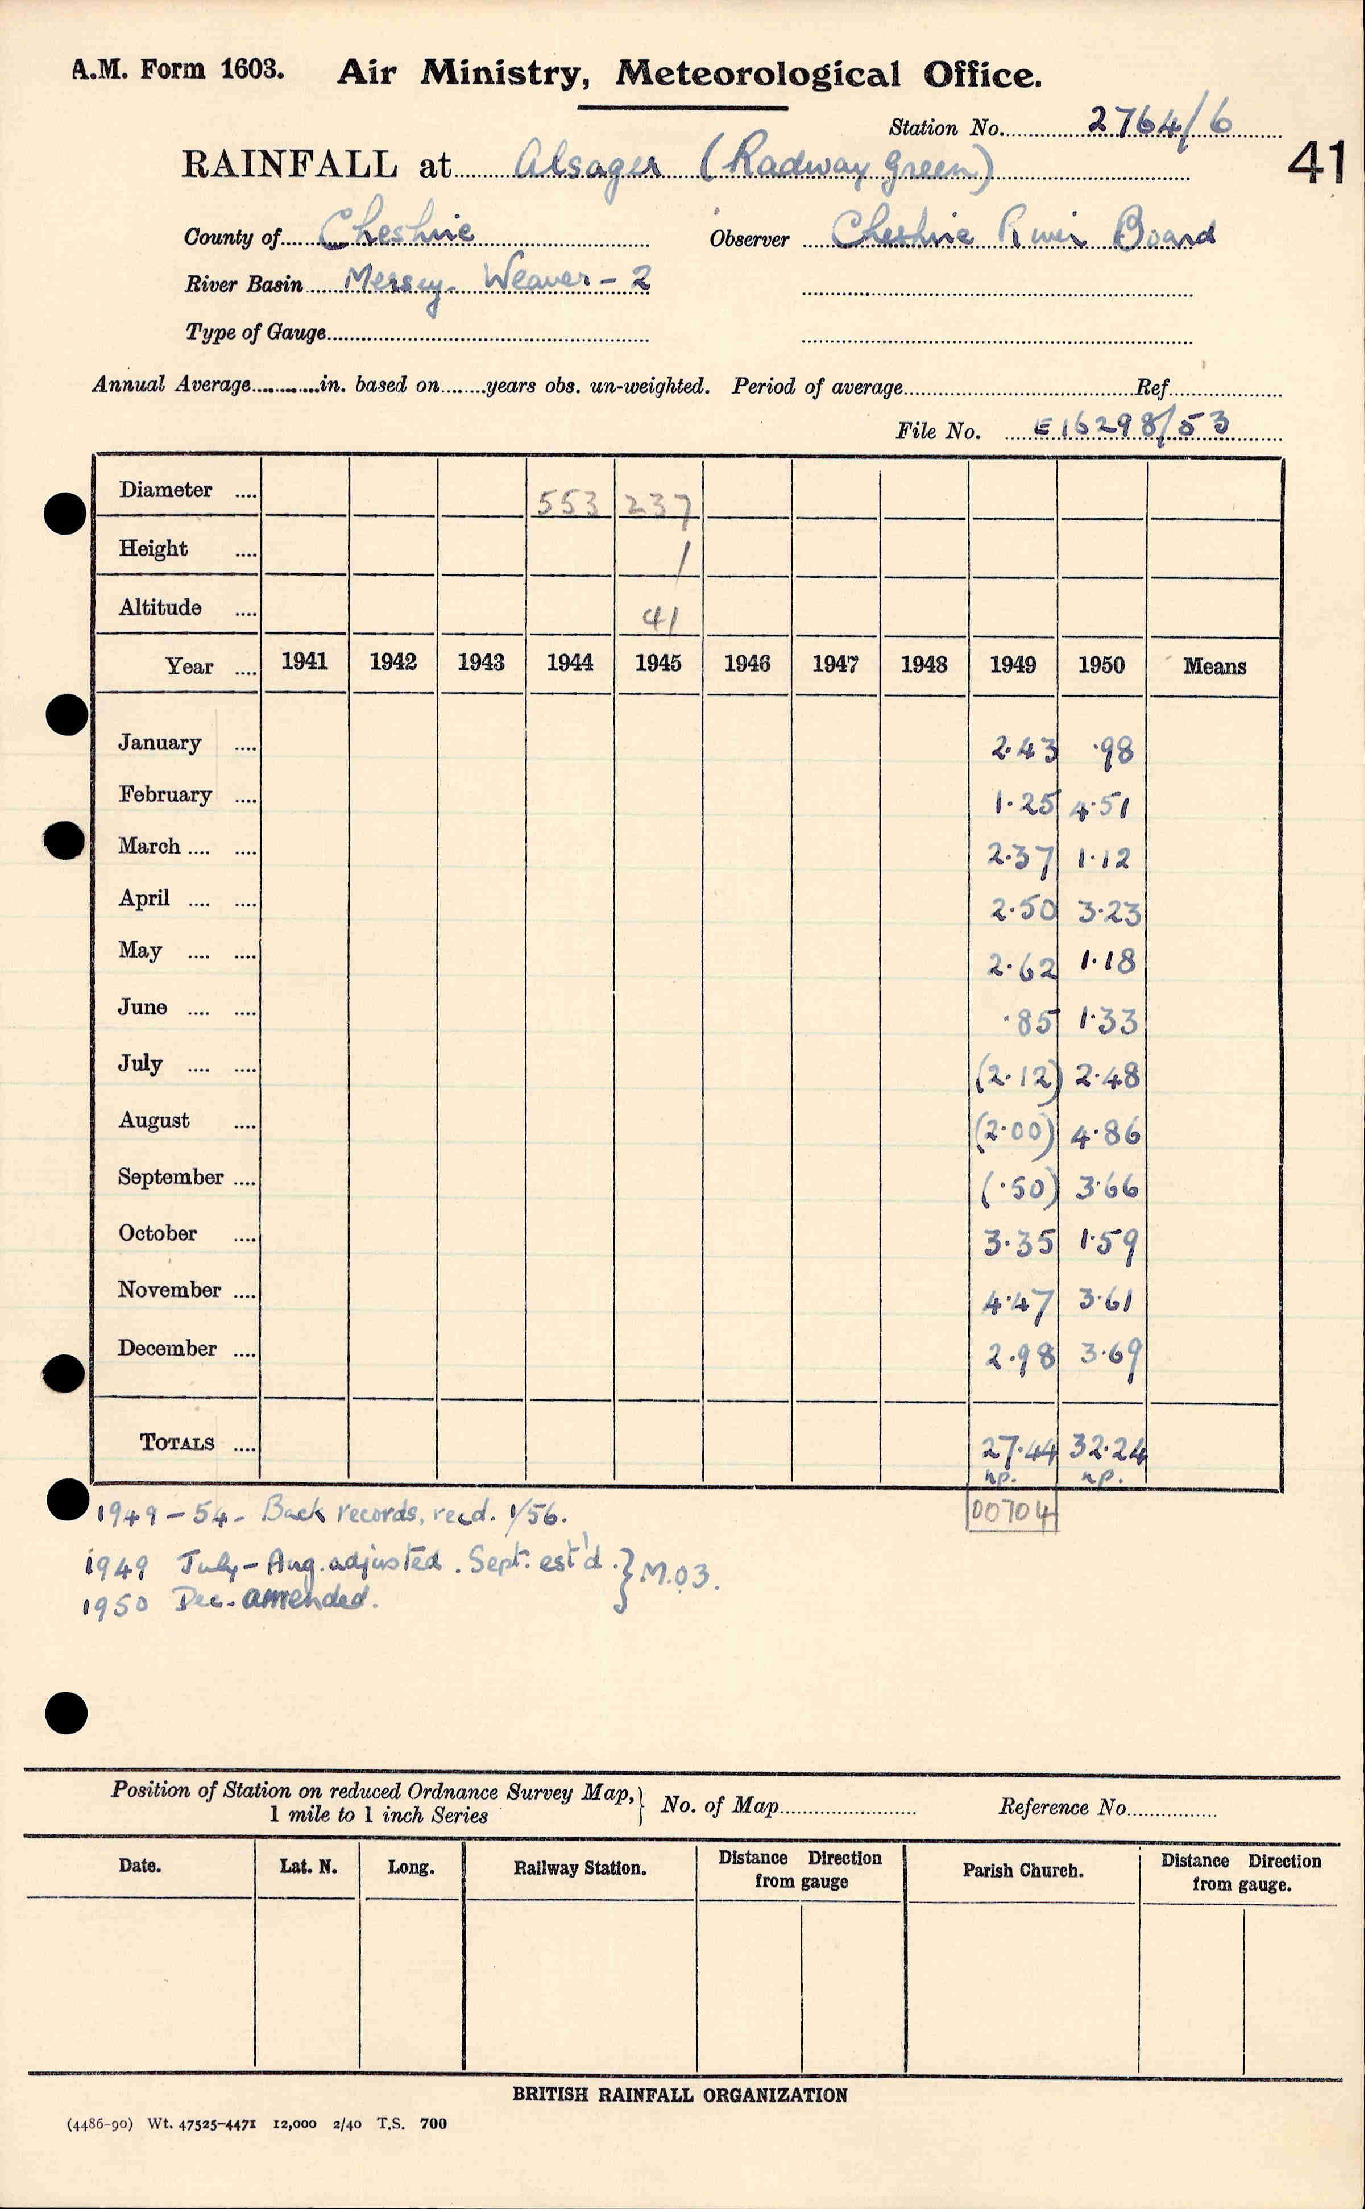 A.M. Form 1603. Air Ministry, Meteorological Office.
Station No. 2764/6
41
RAINFALL at Alsager (Radway Green)
County of Cheshire Observer Cheshire River Board
River Basin Mersey. Weaver - 2
Type of Gauge
Annual Average in. based on years obs. un-weighted. Period of average Ref
File No. E16298/53
Diameter .... 553 237
Height .... 1
Altitude .... 41
Year .... 1941 1942 1943 1944 1945 1946 1947 1948 1949 1950 Means
January .... 2.43 .98
February .... 1.25 4.51
March .... .... 2.37 1.12
April .... .... 2.50 3.23
May .... .... 2.62 1.18
June .... .... .85 1.33
July .... .... (2.12) 2.48
August .... (2.00) 4.86
September .... (.50) 3.66
October .... 3.35 1.59
November .... 4.47 3.61
December .... 2.98 3.69
TOTALS .... 27.44 32.24
np. np.
00704
1949 - 54 - Back records, recd. 1/56.
1949 July - Aug. adjusted. Sept. est'd. } M.O3.
1950 Dec. amended.
Position of Station on reduced Ordnance Survey Map, } No. of Map Reference No.
1 mile to 1 inch Series
Date. Lat. N. Long. Railway Station. Distance Direction from gauge Parish Church. Distance Direction from gauge.
BRITISH RAINFALL ORGANIZATION
(4486-90) Wt. 47525-4471 12,000 2/40 T.S. 700